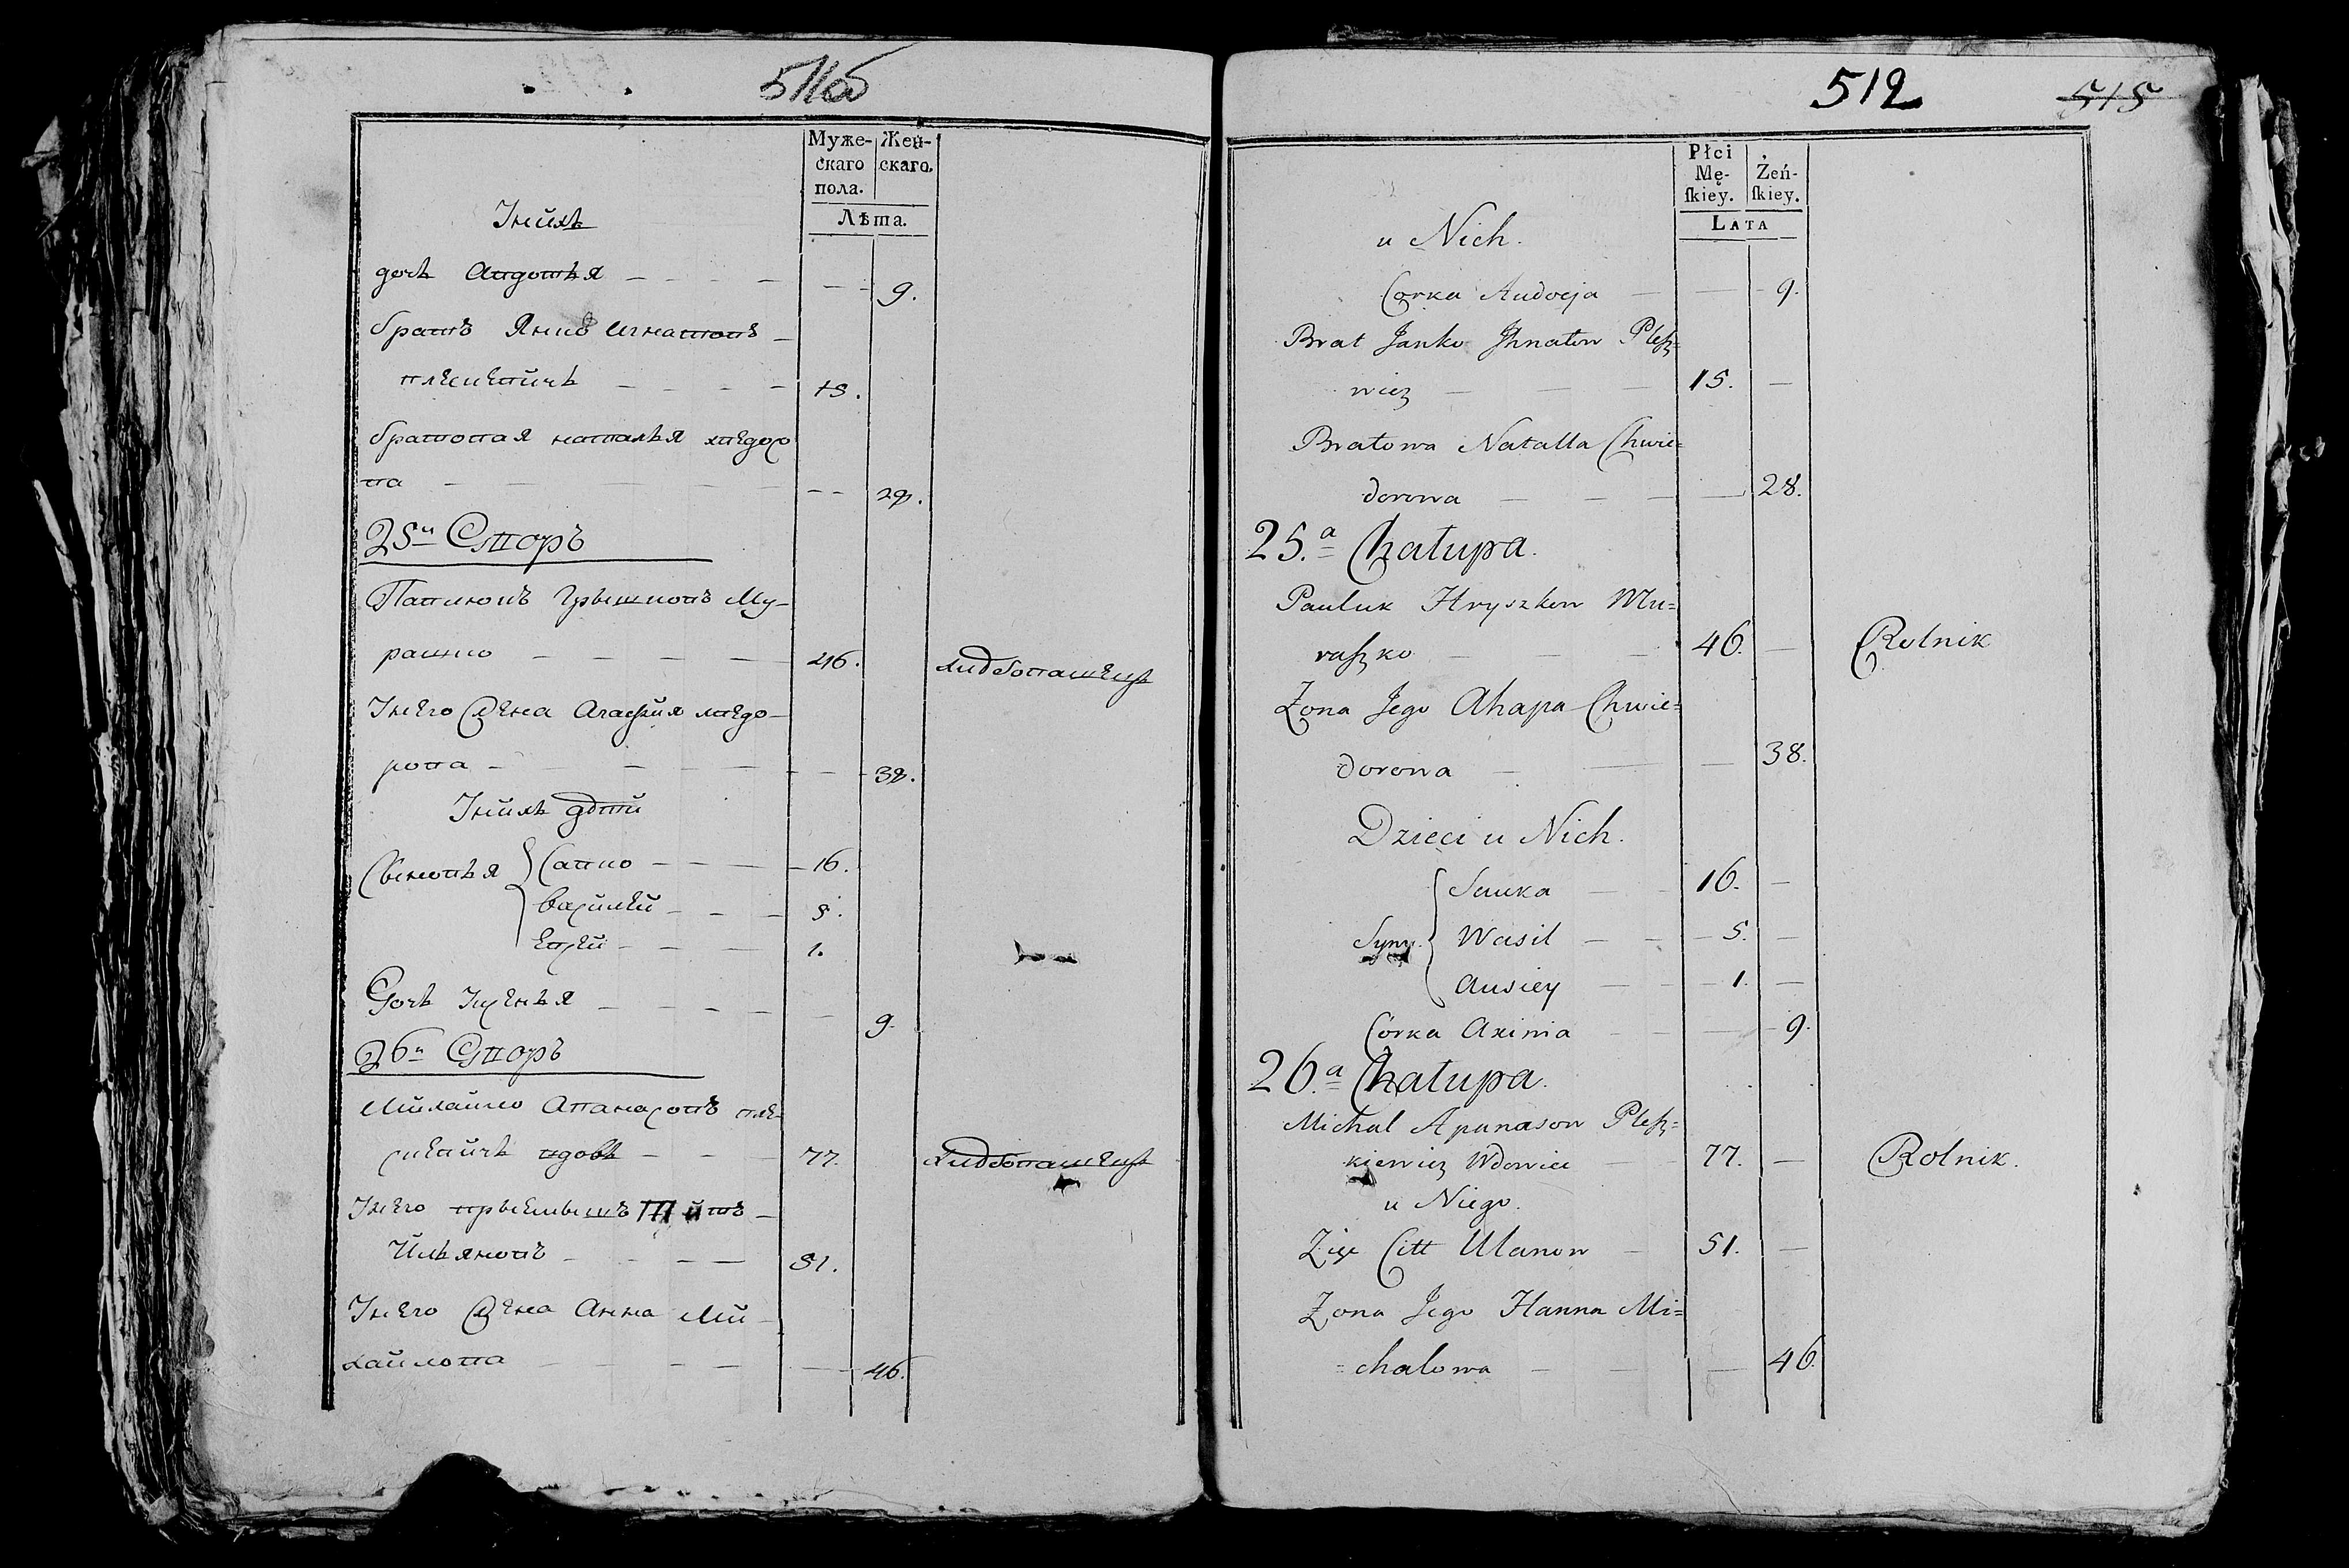 511об
Муже-
скаго
пола.
Жен-
скаго.
Лѣта.
Унихъ
дочь Авдотья 9.
братъ Янко Игнатовъ
плескевичъ 15.
братовая наталья хведоро
ва 28.
25й Дворъ
Павлюкъ Грышковъ Му-
рашко 46. хлебопашецъ
Унего жена Агафия хведо-
рова 38.
Унихъ дѣти
Сыновья Савко 16.
василей 5.
Евсей 1.
Дочь Ксенья 9.
26й Дворъ
Михайло Апанасовъ пле-
скевичъ вдовъ 77. хлебопашецъ
Унего прыемышъ Титъ
Ульяновъ 51.
Унего жена Анна Ми-
хайлова 46.
512 515
Płci
Mę-
skiey.
Żeń-
skiey.
LATA
u Nich.
Corka Audocja 9.
Brat Janko Jhnatow Plesz=
wicz 15.
Bratowa Natalla Chwie=
dorowa 28.
25.a Chałupa.
Pauluk Hryszkow Mu=
raszko 46. Rolnik
Zona Jego Ahapa Chwie=
dorowa 38.
Dzieci u Nich.
Sauka 16.
Syny. Wasil 5.
Ausiey 1.
Córka Axinia 9.
26.a Chałupa.
Michal Apanasow Plesz=
kiewicz Wdowiec 77. Rolnik.
u Niego.
Zięć Citt Ulanow 51.
Zona Jego Hanna Mi=
=chalowa 46.